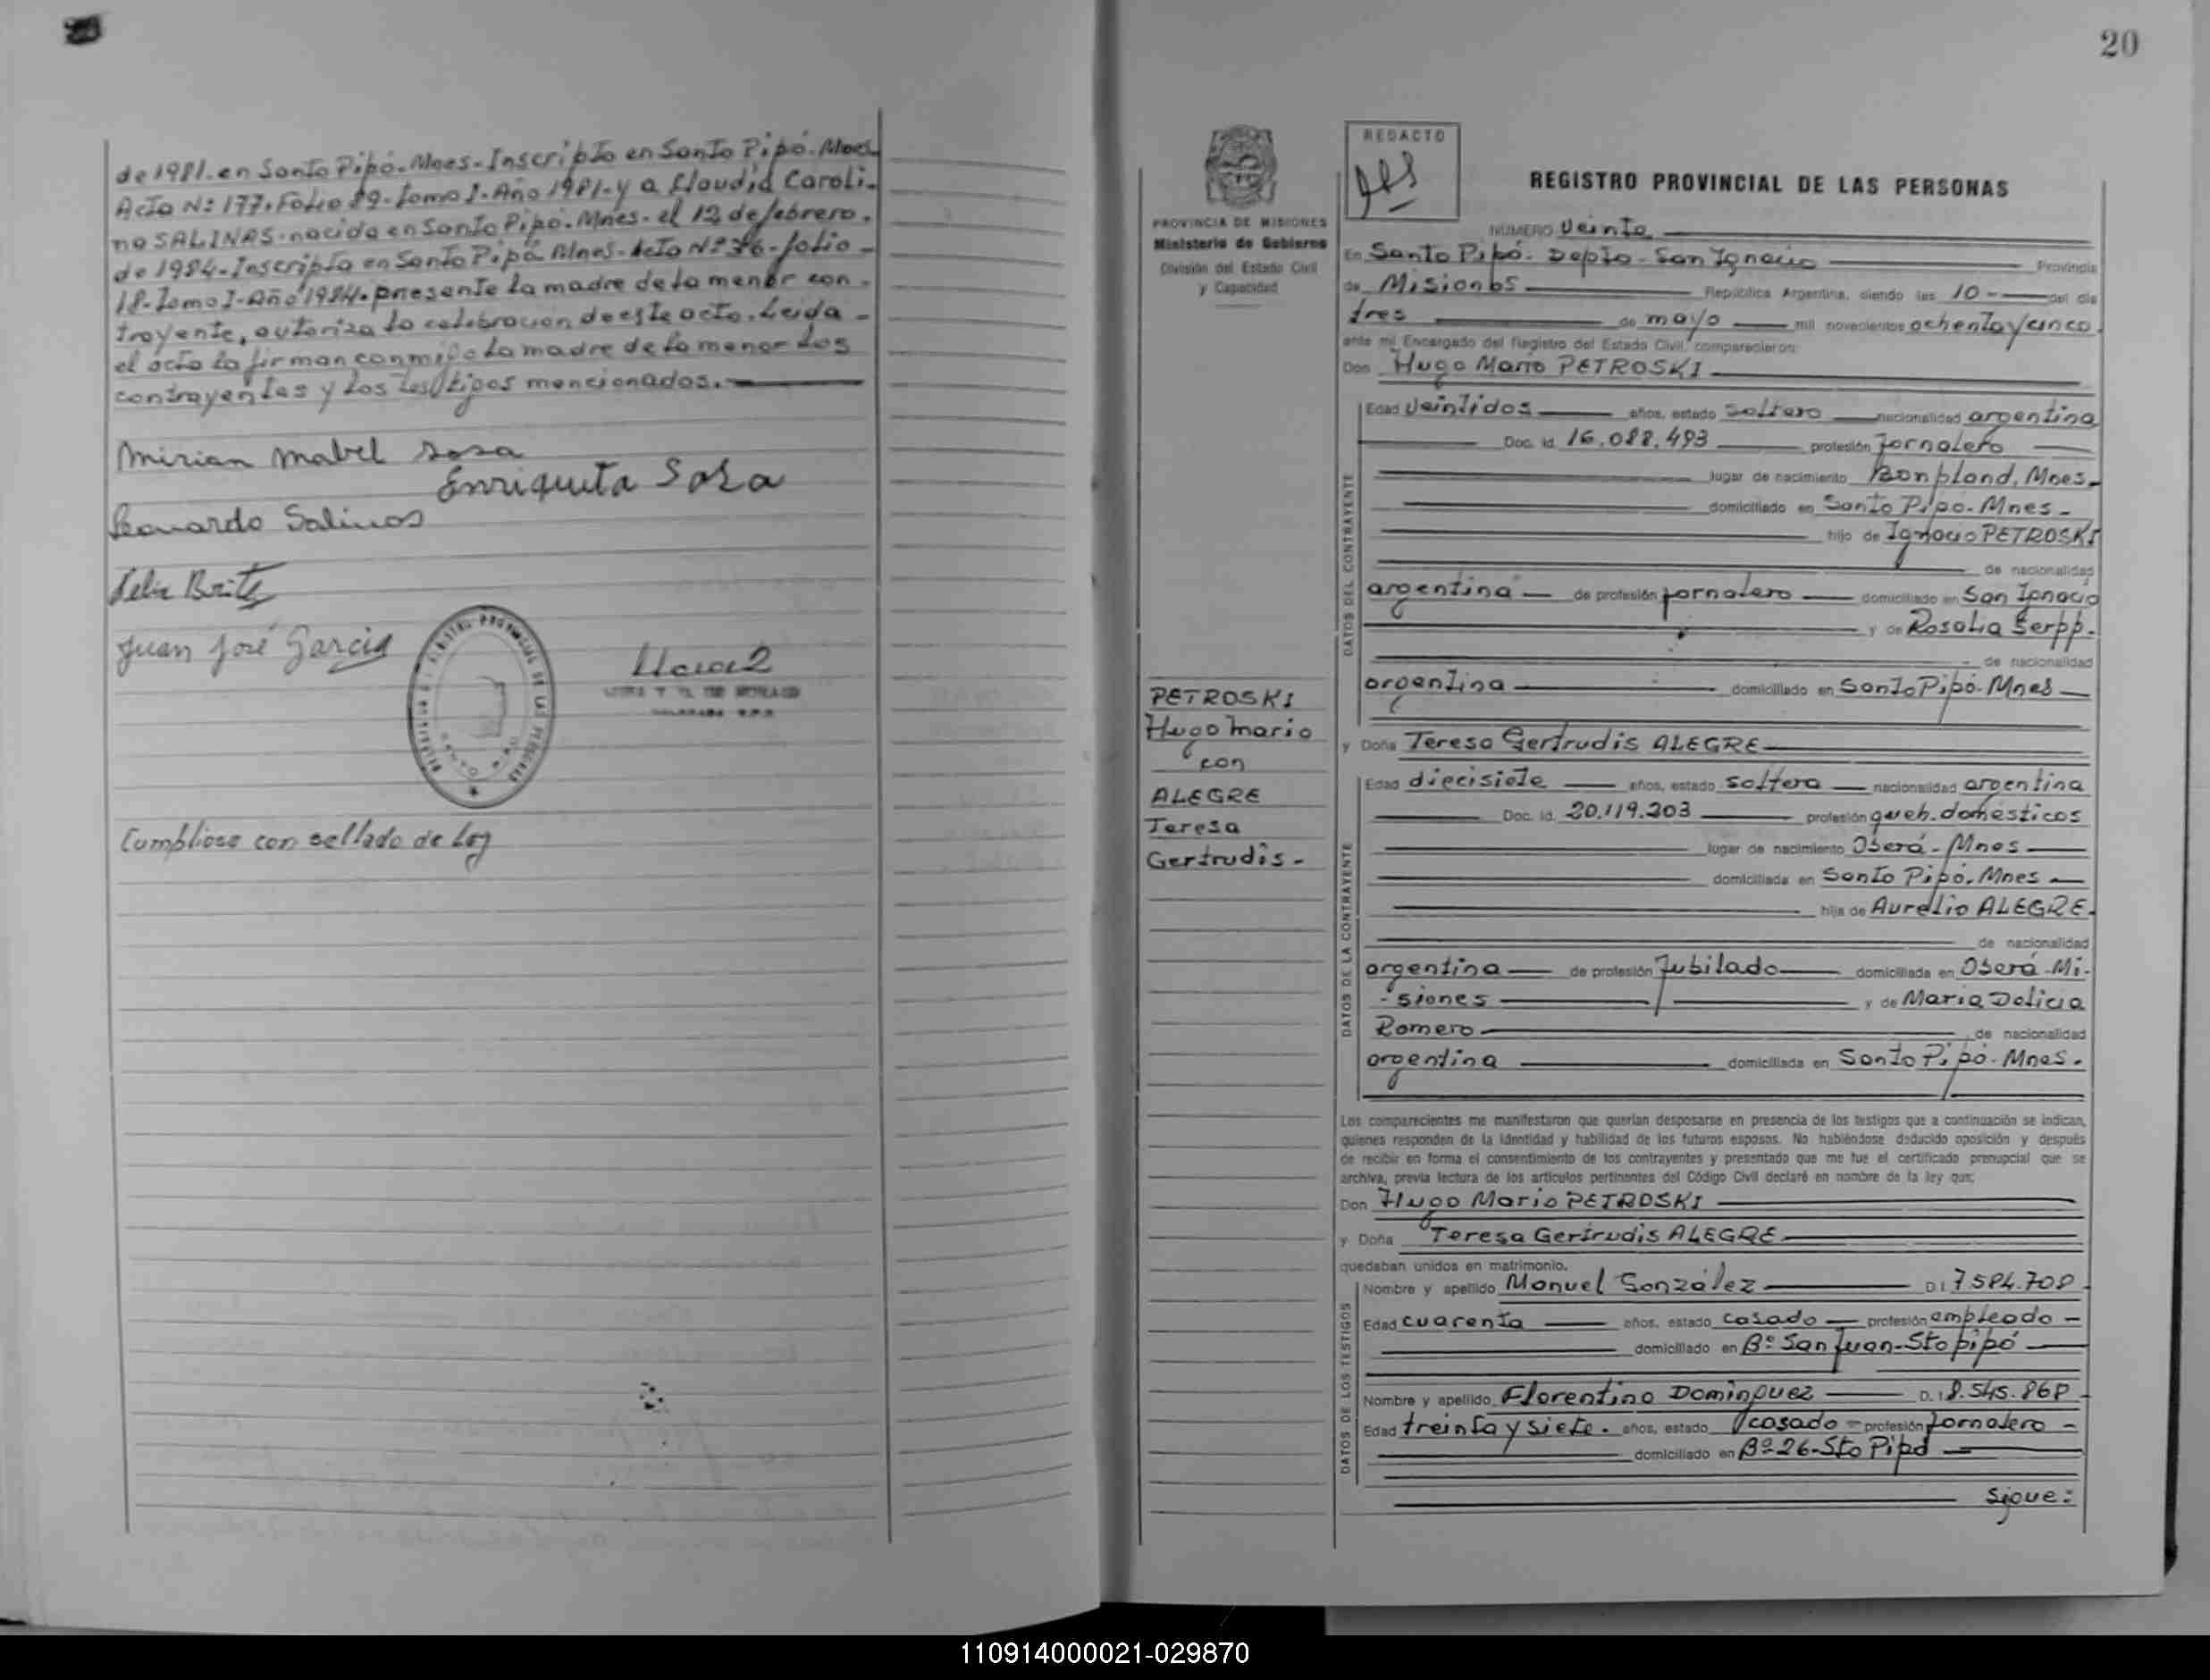 de 1981. en Santo Pipó - Mnes - Inscripto en Santo Pipó - Mnes.
Acta Nº 177. Folio 89. tomo I. Año 1981. y a Claudia Caroli-
na SALINAS. nacida en Santo Pipó. Mnes. el 12 de febrero.
de 1984 - Inscripta en Santo Pipó Mnes - Acta Nº 36 - folio -
18. tomo I - Año 1984. presente la madre de la menor con-
trayente, autoriza la celebracion de este acto. Leida -
el acta la firman conmigo la madre de la menor los
contrayentes y los testigos mencionados.
Mirian Mabel Sosa
Enriqueta Sosa
Leonardo Salinas
Felix Brite
Juan José Garcia
Cumpliose con sellado de Ley
20
PROVINCIA DE MISIONES
Ministerio de Gobierno
División del Estado Civil
y Capacidad
PETROSKI
Hugo Mario
con
ALEGRE
Teresa
Gertrudis -
REDACTO
REGISTRO PROVINCIAL DE LAS PERSONAS
NUMERO Veinte
En Santo Pipó - Depto - San Ignacio Provincia
de Misiones República Argentina, siendo las 10 - del día
tres de mayo mil novecientos ochenta y cinco
ante mí Encargado del Registro del Estado Civil, comparecieron:
Don Hugo Mario PETROSKI
DATOS DEL CONTRAYENTE
Edad Veintidos años, estado Soltero nacionalidad argentina
Doc. Id. 16.088.493 profesión Jornalero
lugar de nacimiento Bonpland, Mnes.
domiciliado en Santo Pipó - Mnes -
hijo de Ignacio PETROSKI
de nacionalidad
argentina - de profesión jornalero domiciliado en San Ignacio
y de Rosalia Serpp.
de nacionalidad
argentina domiciliado en Santo Pipó - Mnes
y Doña Teresa Gertrudis ALEGRE
DATOS DE LA CONTRAYENTE
Edad diecisiete años, estado soltera nacionalidad argentina
Doc. Id. 20.119.203 profesión queh. domésticos
lugar de nacimiento Oberá - Mnes
domiciliada en Santo Pipó. Mnes
hija de Aurelio ALEGRE.
de nacionalidad
argentina de profesión Jubilado domiciliada en Oberá - Mi-
- siones y de Maria Delicia
Romero de nacionalidad
argentina domiciliada en Santo Pipó - Mnes.
Los comparecientes me manifestaron que querían desposarse en presencia de los testigos que a continuación se indican,
quienes responden de la identidad y habilidad de los futuros esposos. No habiéndose deducido oposición y después
de recibir en forma el consentimiento de los contrayentes y presentado que me fue el certificado prenupcial que se
archiva, previa lectura de los artículos pertinentes del Código Civil declaré en nombre de la ley que:
Don Hugo Mario PETROSKI
y Doña Teresa Gertrudis ALEGRE
quedaban unidos en matrimonio.
DATOS DE LOS TESTIGOS
Nombre y apellido Manuel González D.I 7.584.708
Edad cuarenta años, estado casado profesión empleado -
domiciliado en Bº San Juan - Sto Pipó
Nombre y apellido Florentino Dominguez D.I 8.545.868
Edad treinta y siete. años, estado casado profesión jornalero -
domiciliado en Bº 26 - Sto Pipó
Sigue:
110914000021-029870